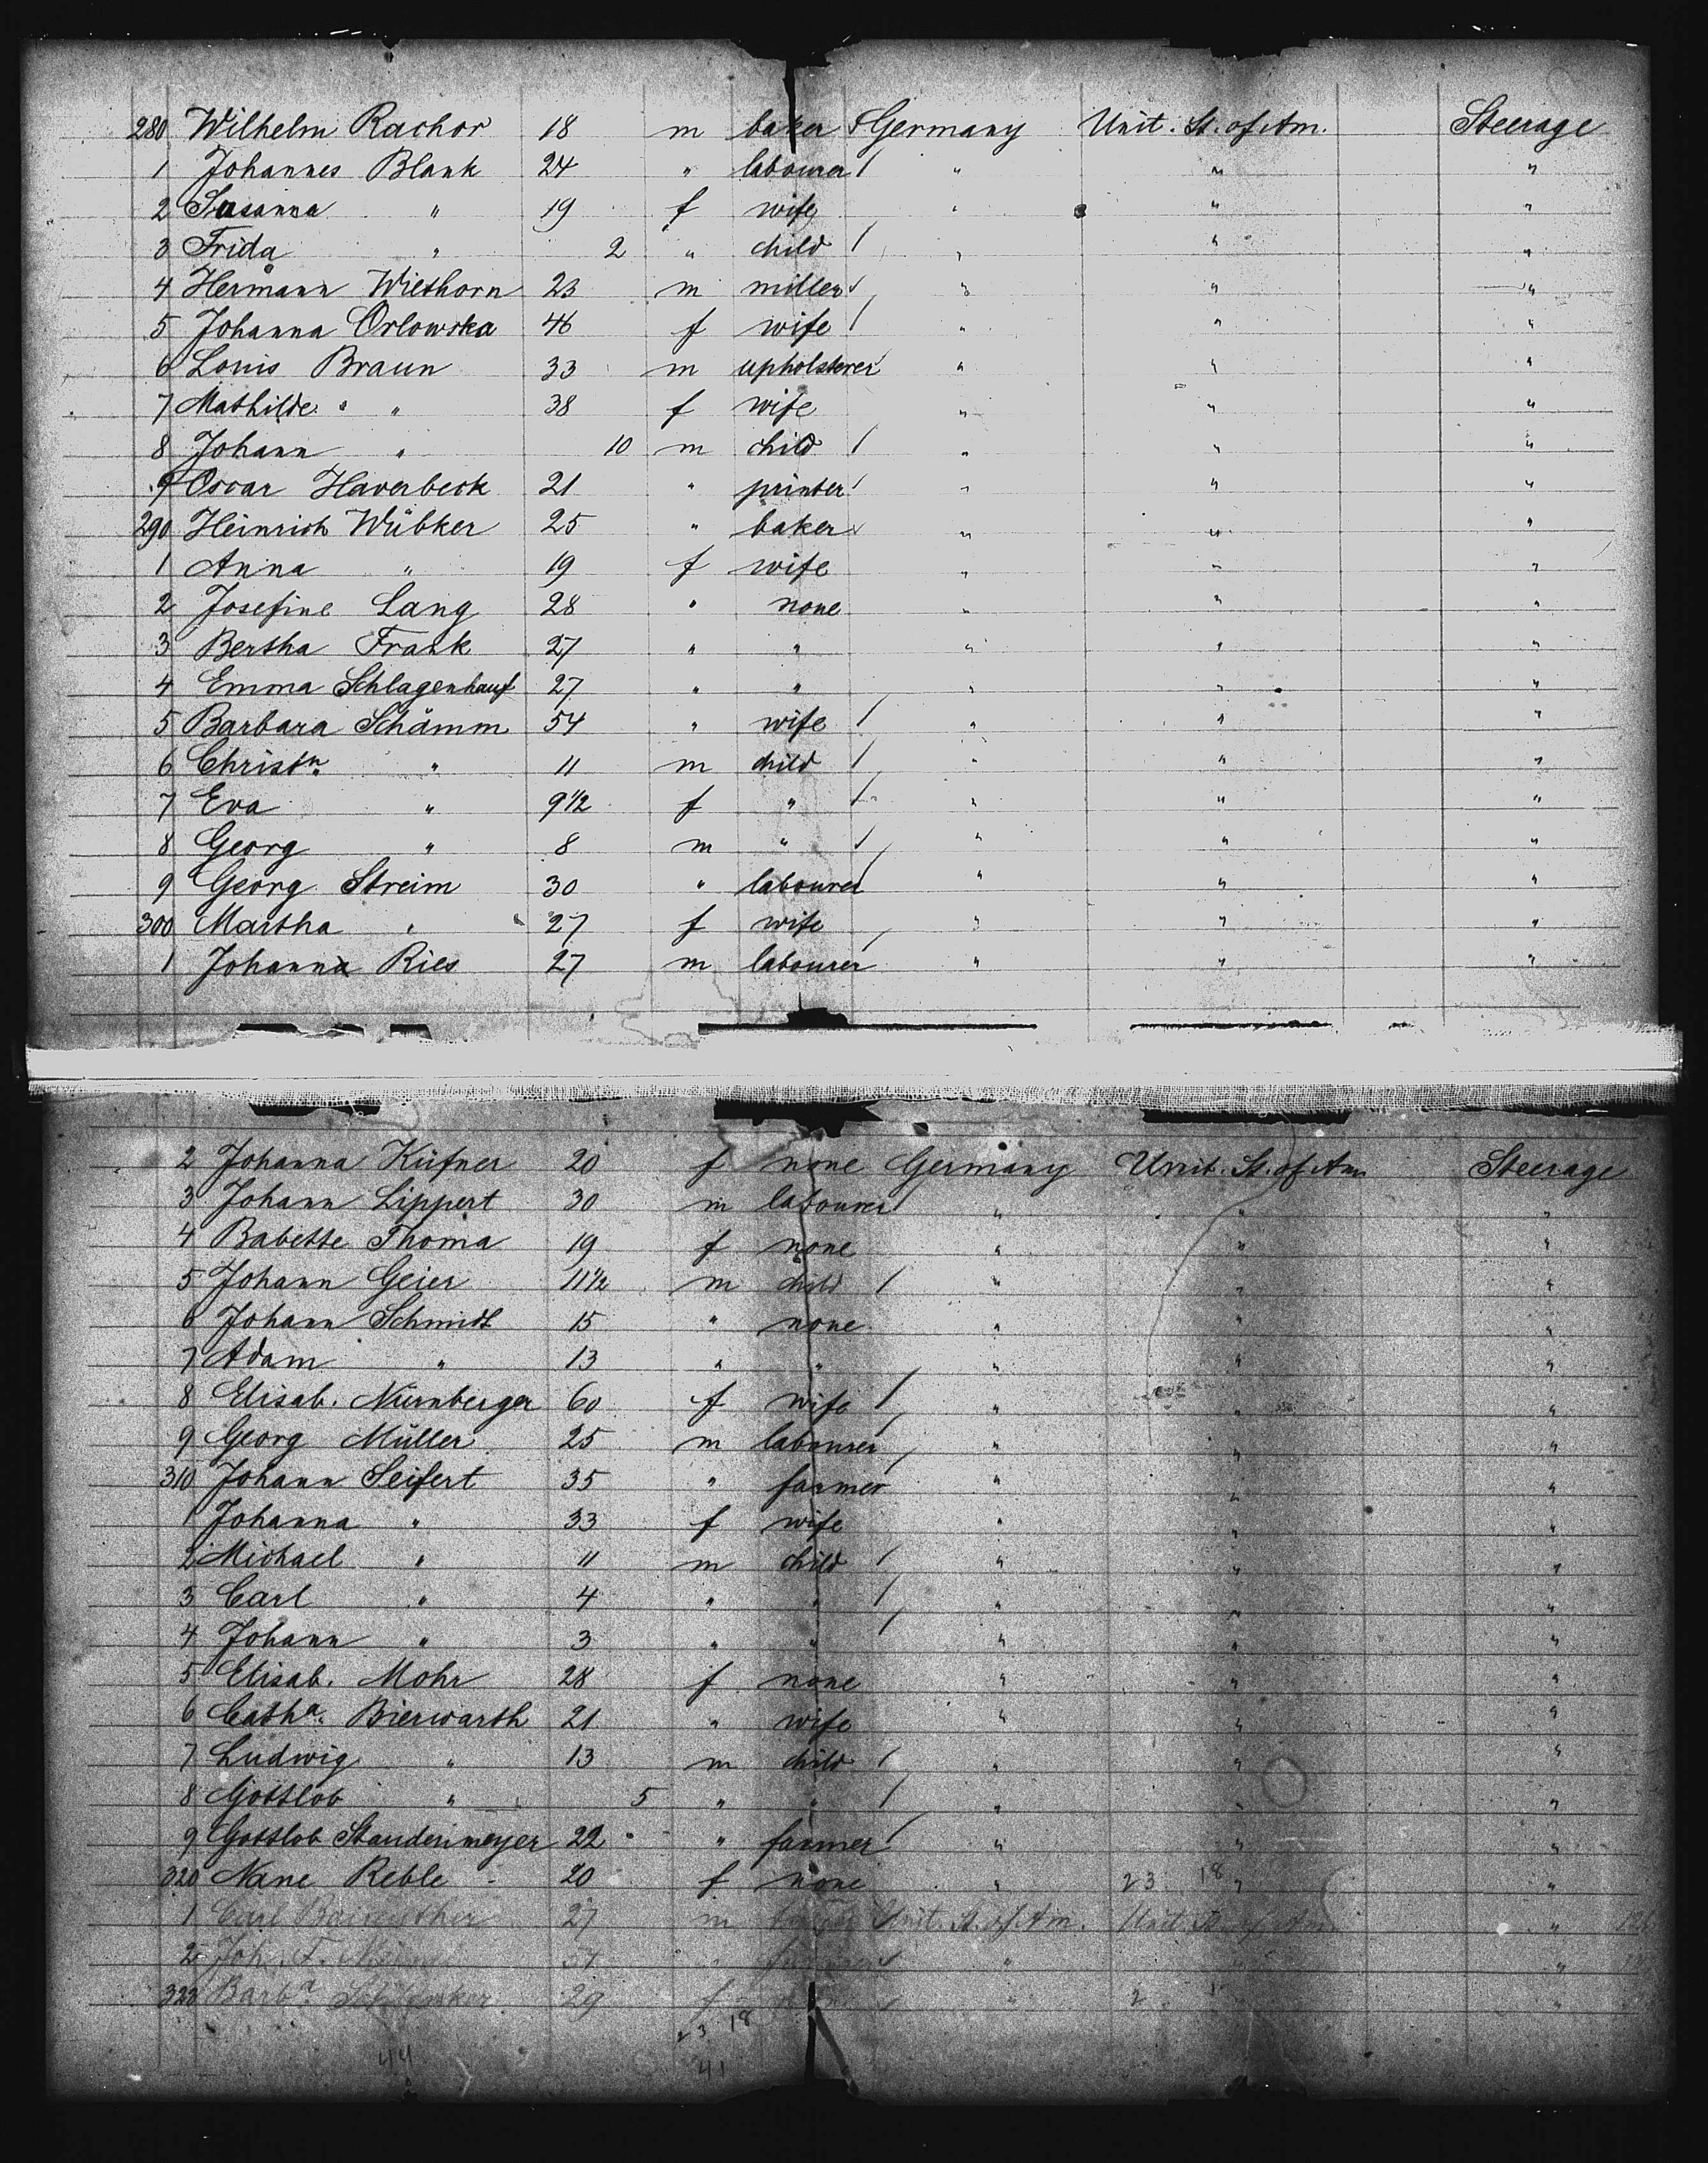 280 Wilhelm Rachor 18 m baker Germany Unit. St. of Am. Steerage
1 Johannes Blank 24 " labourer " " "
2 Susanna " 19 f wife " " "
3 Frida " 2 " child " " "
4 Hermann Wiethorn 23 m miller " " "
5 Johanna Orlowska 46 f wife " " "
6 Louis Braun 33 m upholsterer " " "
7 Mathilde " 38 f wife " " "
8 Johann " 10 m child " " "
9 Oscar Haverbeck 21 " printer " " "
290 Heinrich Wübker 25 " baker " " "
1 Anna " 19 f wife " " "
2 Josefine Lang 28 " none " " "
3 Bertha Frank 27 " " " " "
4 Emma Schlagenhauf 27 " " " " "
5 Barbara Schämm 54 " wife " " "
6 Christn. " 11 m child " " "
7 Eva " 9 1/2 f " " " "
8 Georg " 8 m " " " "
9 Georg Streim 30 " labourer " " "
300 Martha " 27 f wife " " "
1 Johann Ries 27 m labourer " " "
2 Johanna Küfner 20 f none Germany Unit. St. of Am. Steerage
3 Johann Lippert 30 m labourer " " "
4 Babette Thoma 19 f none " " "
5 Johann Geier 11 1/2 m child " " "
6 Johann Schmidt 15 " none " " "
7 Adam " 13 " " " " "
8 Elisab. Nürnberger 60 f wife " " "
9 Georg Müller 25 m labourer " " "
310 Johann Seifert 35 " farmer " " "
1 Johanna " 33 f wife " " "
2 Michael " 11 m child " " "
3 Carl " 4 " " " " "
4 Johann " 3 " " " " "
5 Elisab. Mohr 28 f none " " "
6 Catha. Bierwarth 21 " wife " " "
7 Ludwig " 13 m child " " "
8 Gottlob " 5 " " " " "
9 Gottlob Staudenmeyer 22 " farmer " " "
320 Nane Reble 20 f none " 23 18 " "
1 Carl 27 m Unit. St. of Am. Unit. St. of Am. "
2 Joh. F. " " "
323 Barba. 29 f " 2 "
23 18
44 41